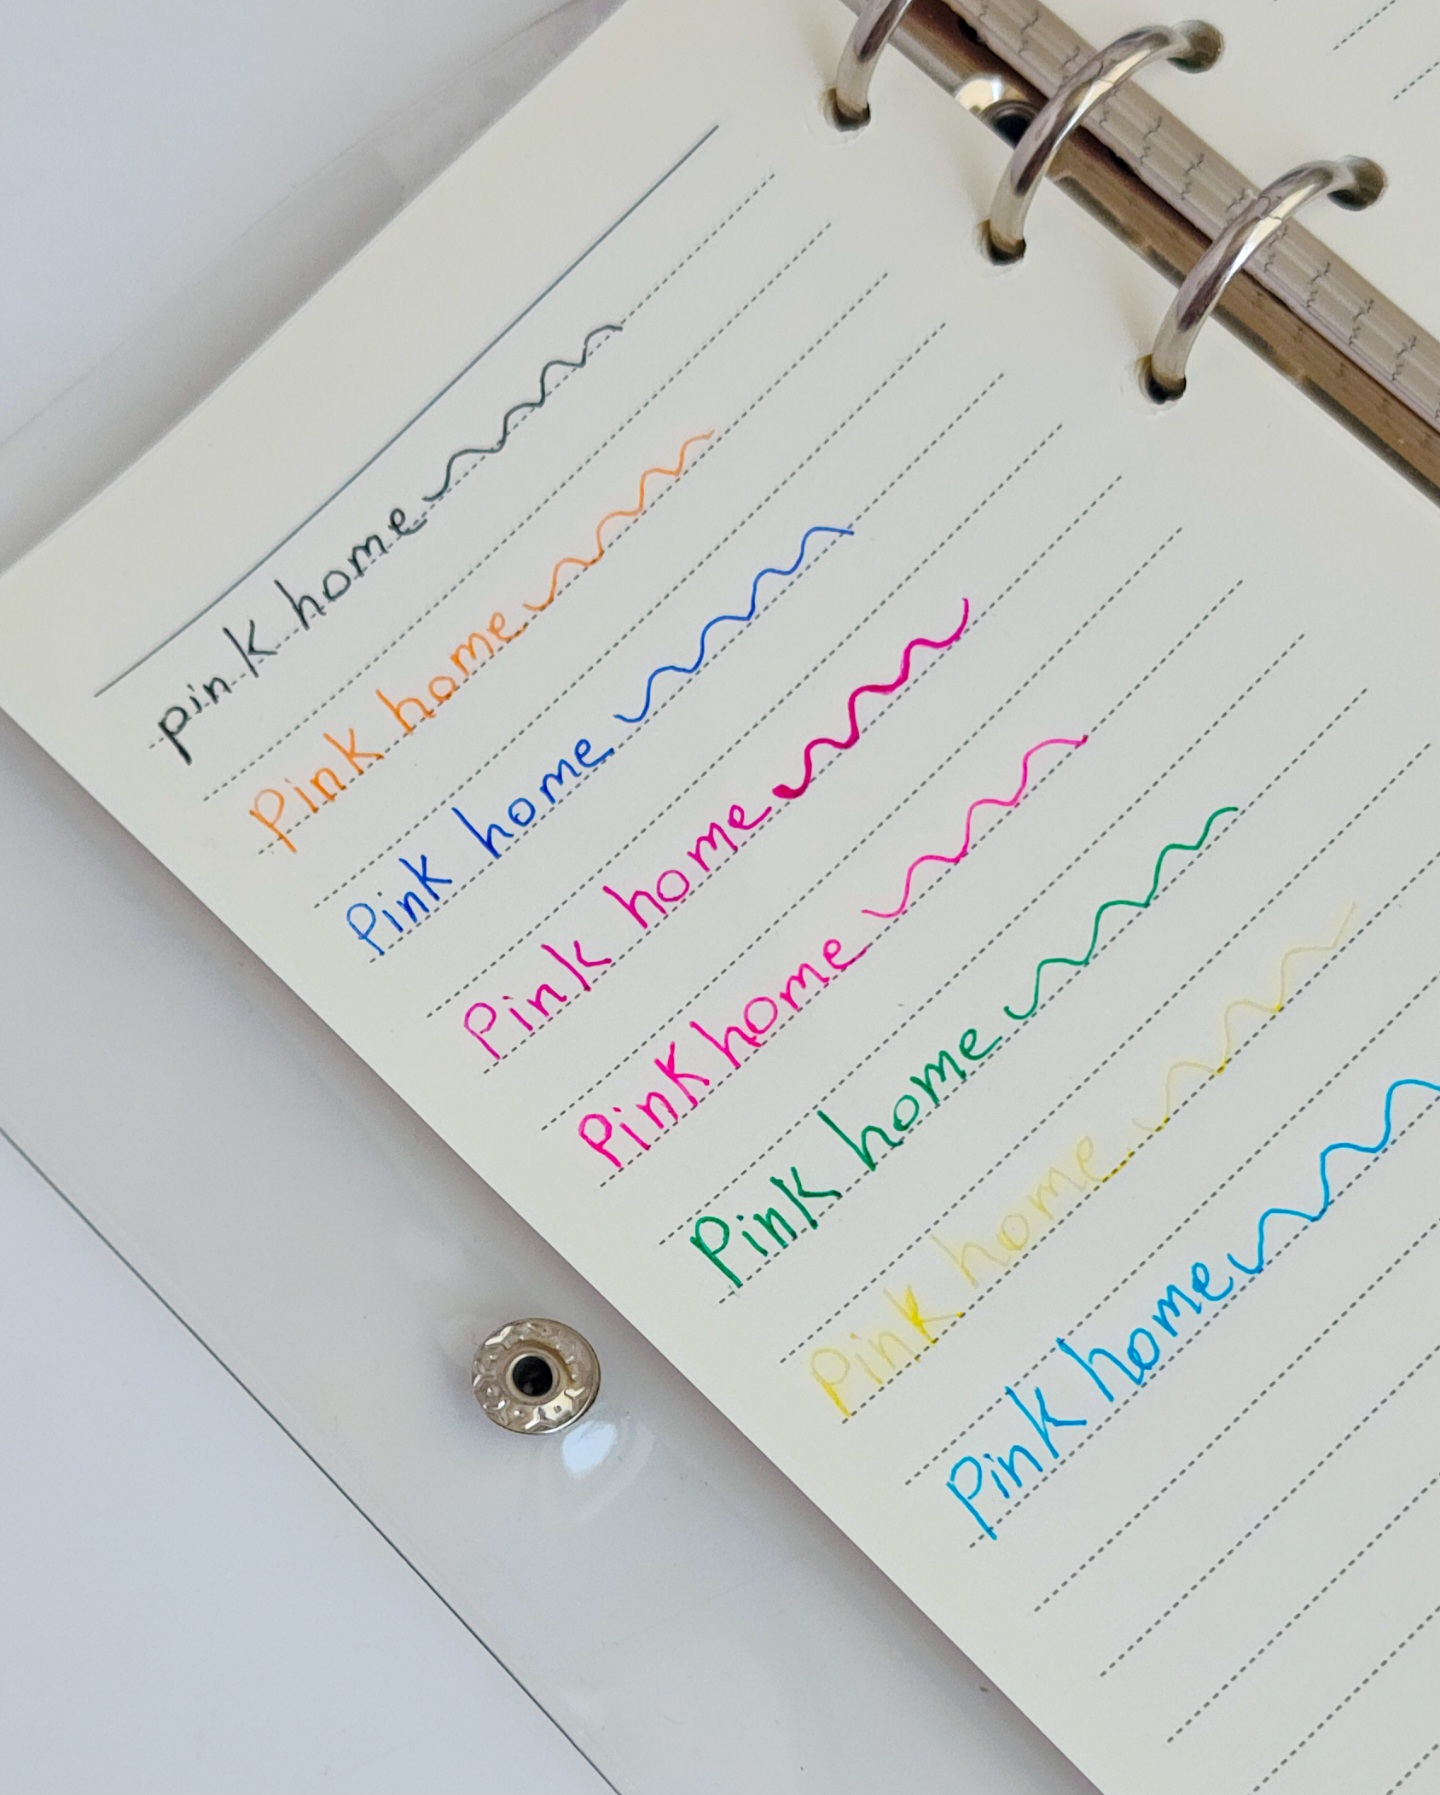 pink home
Pink home
Pink home
Pink home
Pink home
Pink home
Pink home
Pink home